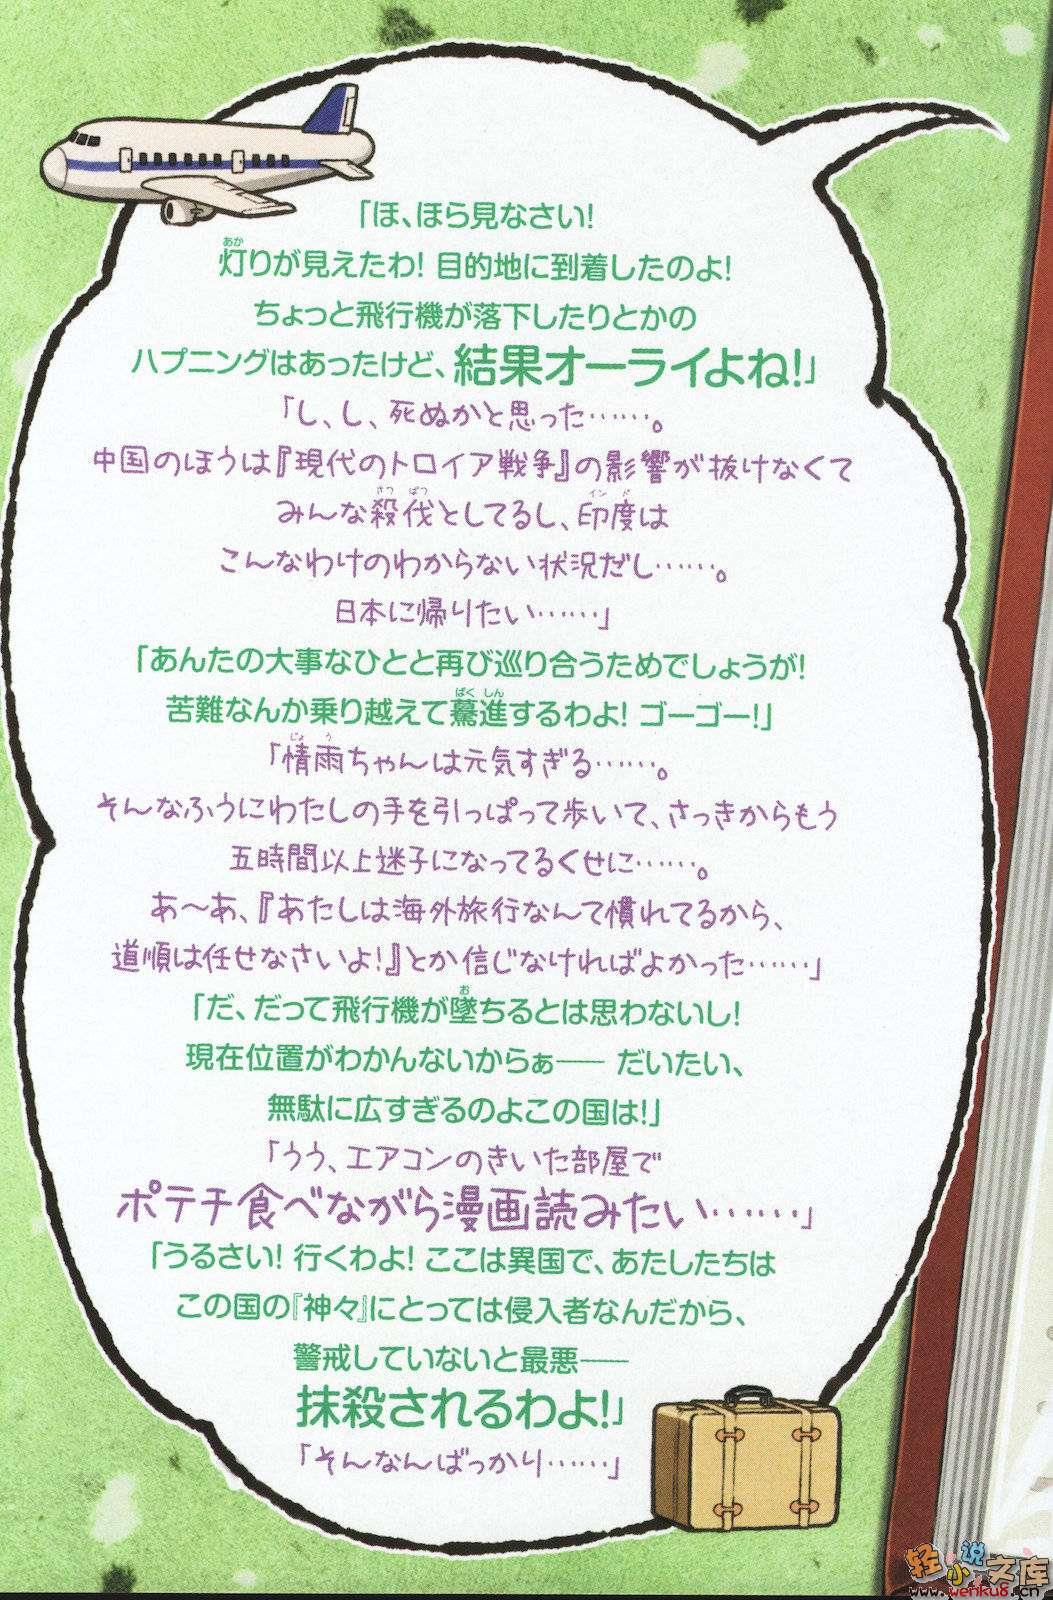 「ほ、ほら見なさい!
灯りが見えたわ! 目的地に到着したのよ!
ちょっと飛行機が落下したりとかの
ハプニングはあったけど、結果オーライよね!」
「し、し、死ぬかと思った……。
中国のほうは『現代のトロイア戦争』の影響が抜けなくて
みんな殺伐としてるし、印度は
こんなわけのわからない状況だし……。
日本に帰りたい……」
「あんたの大事なひとと再び巡り合うためでしょうが!
苦難なんか乗り越えて驀進するわよ! ゴーゴー!」
「情雨ちゃんは元気すぎる……。
そんなふうにわたしの手を引っぱって歩いて、さっきからもう
五時間以上迷子になってるくせに……。
あ〜あ、『あたしは海外旅行なんて慣れてるから、
道順は任せなさいよ!』とか信じなければよかった……」
「だ、だって飛行機が墜ちるとは思わないし!
現在位置がわかんないからぁ── だいたい、
無駄に広すぎるのよこの国は!」
「うう、エアコンのきいた部屋で
ポテチ食べながら漫画読みたい……」
「うるさい! 行くわよ! ここは異国で、あたしたちは
この国の『神々』にとっては侵入者なんだから、
警戒していないと最悪──
抹殺されるわよ!」
「そんなんばっかり……」
轻小说文库
www.wenku8.cn